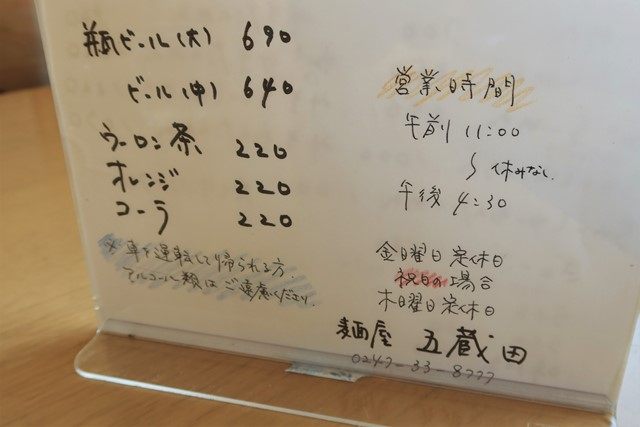 瓶ビール(大) 690
ビール(中) 640
ウーロン茶 220
オレンジ 220
コーラ 220
※ 車で運転して帰られる方、
アルコール類はご遠慮ください。
営業時間
午前 11:00
〜 休みなし
午後 4:30
金曜日定休日
祝日の場合
木曜日定休日
麺屋 五蔵田
0247-33-8777